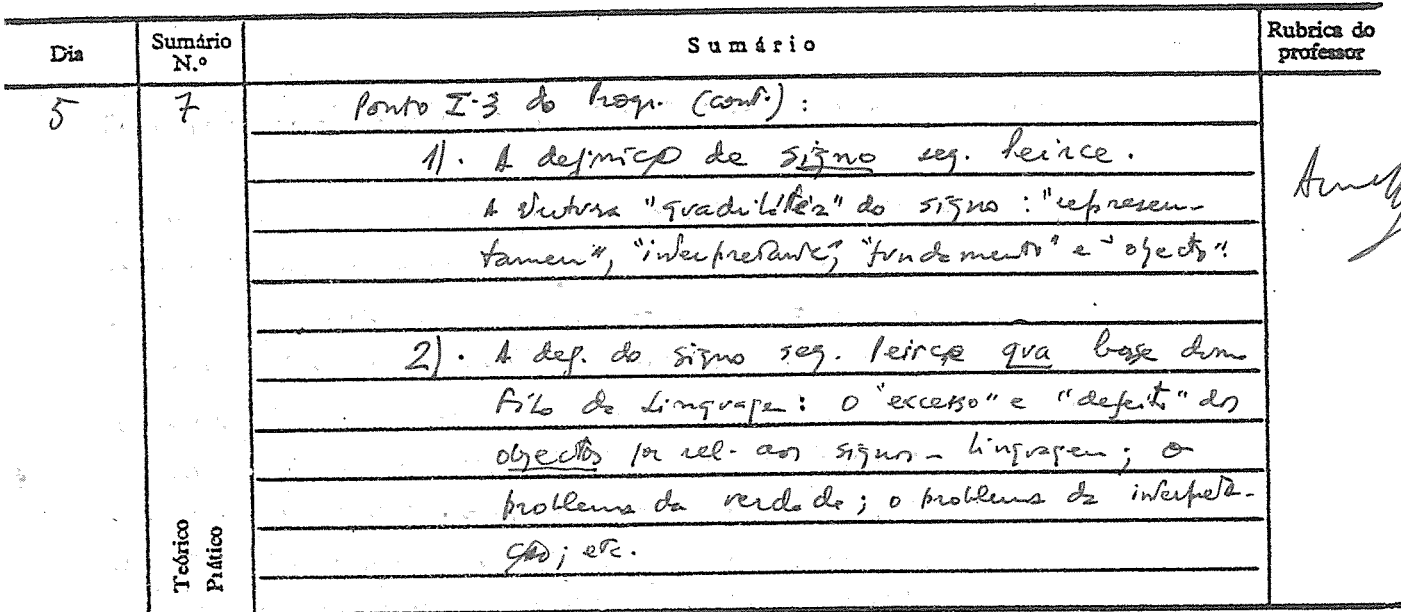 Dia Sumário N.º Sumário Rubrica do professor
5 7 Ponto I-3 do Progr. (cont.) :
1). A definição de signo seg. Peirce.
A "quadrilátera" do signo : "represen-
tamen", "interpretante", "fundamento" e "objecto".
2). A def. do signo seg. Peirce qua base duma
Filo da Linguagem: o "excesso" e "defeito" dos
objectos por rel. aos signos - linguagem ; o
problema da verdade ; o problema da interpreta-
ção ; etc.
Teórico
Prático